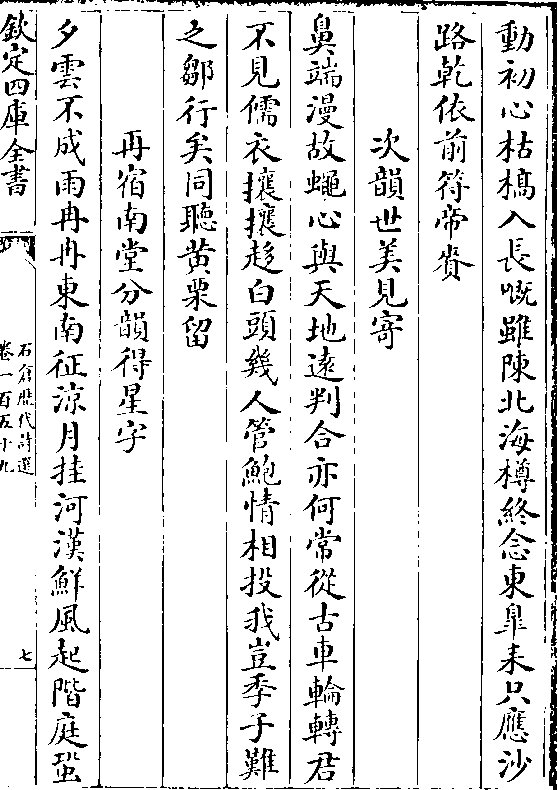 動初心枯槁入長嘅雖陳北海樽終念東臯耒只應沙
路乾依前符帝賚
次韻世美見寄
鼻端漫故蠅心與天地遠判合亦何常從古車輪轉君
不見儒衣攘攘趍白頭幾人管鮑情相投我豈季子難
之鄒行矣同聽黄栗留
再宿南堂分韻得星字
夕雲不成雨冉冉東南征涼月挂河漢鮮風起階庭蛩
欽定四庫全書
石倉歴代詩選
卷一百五十九
七